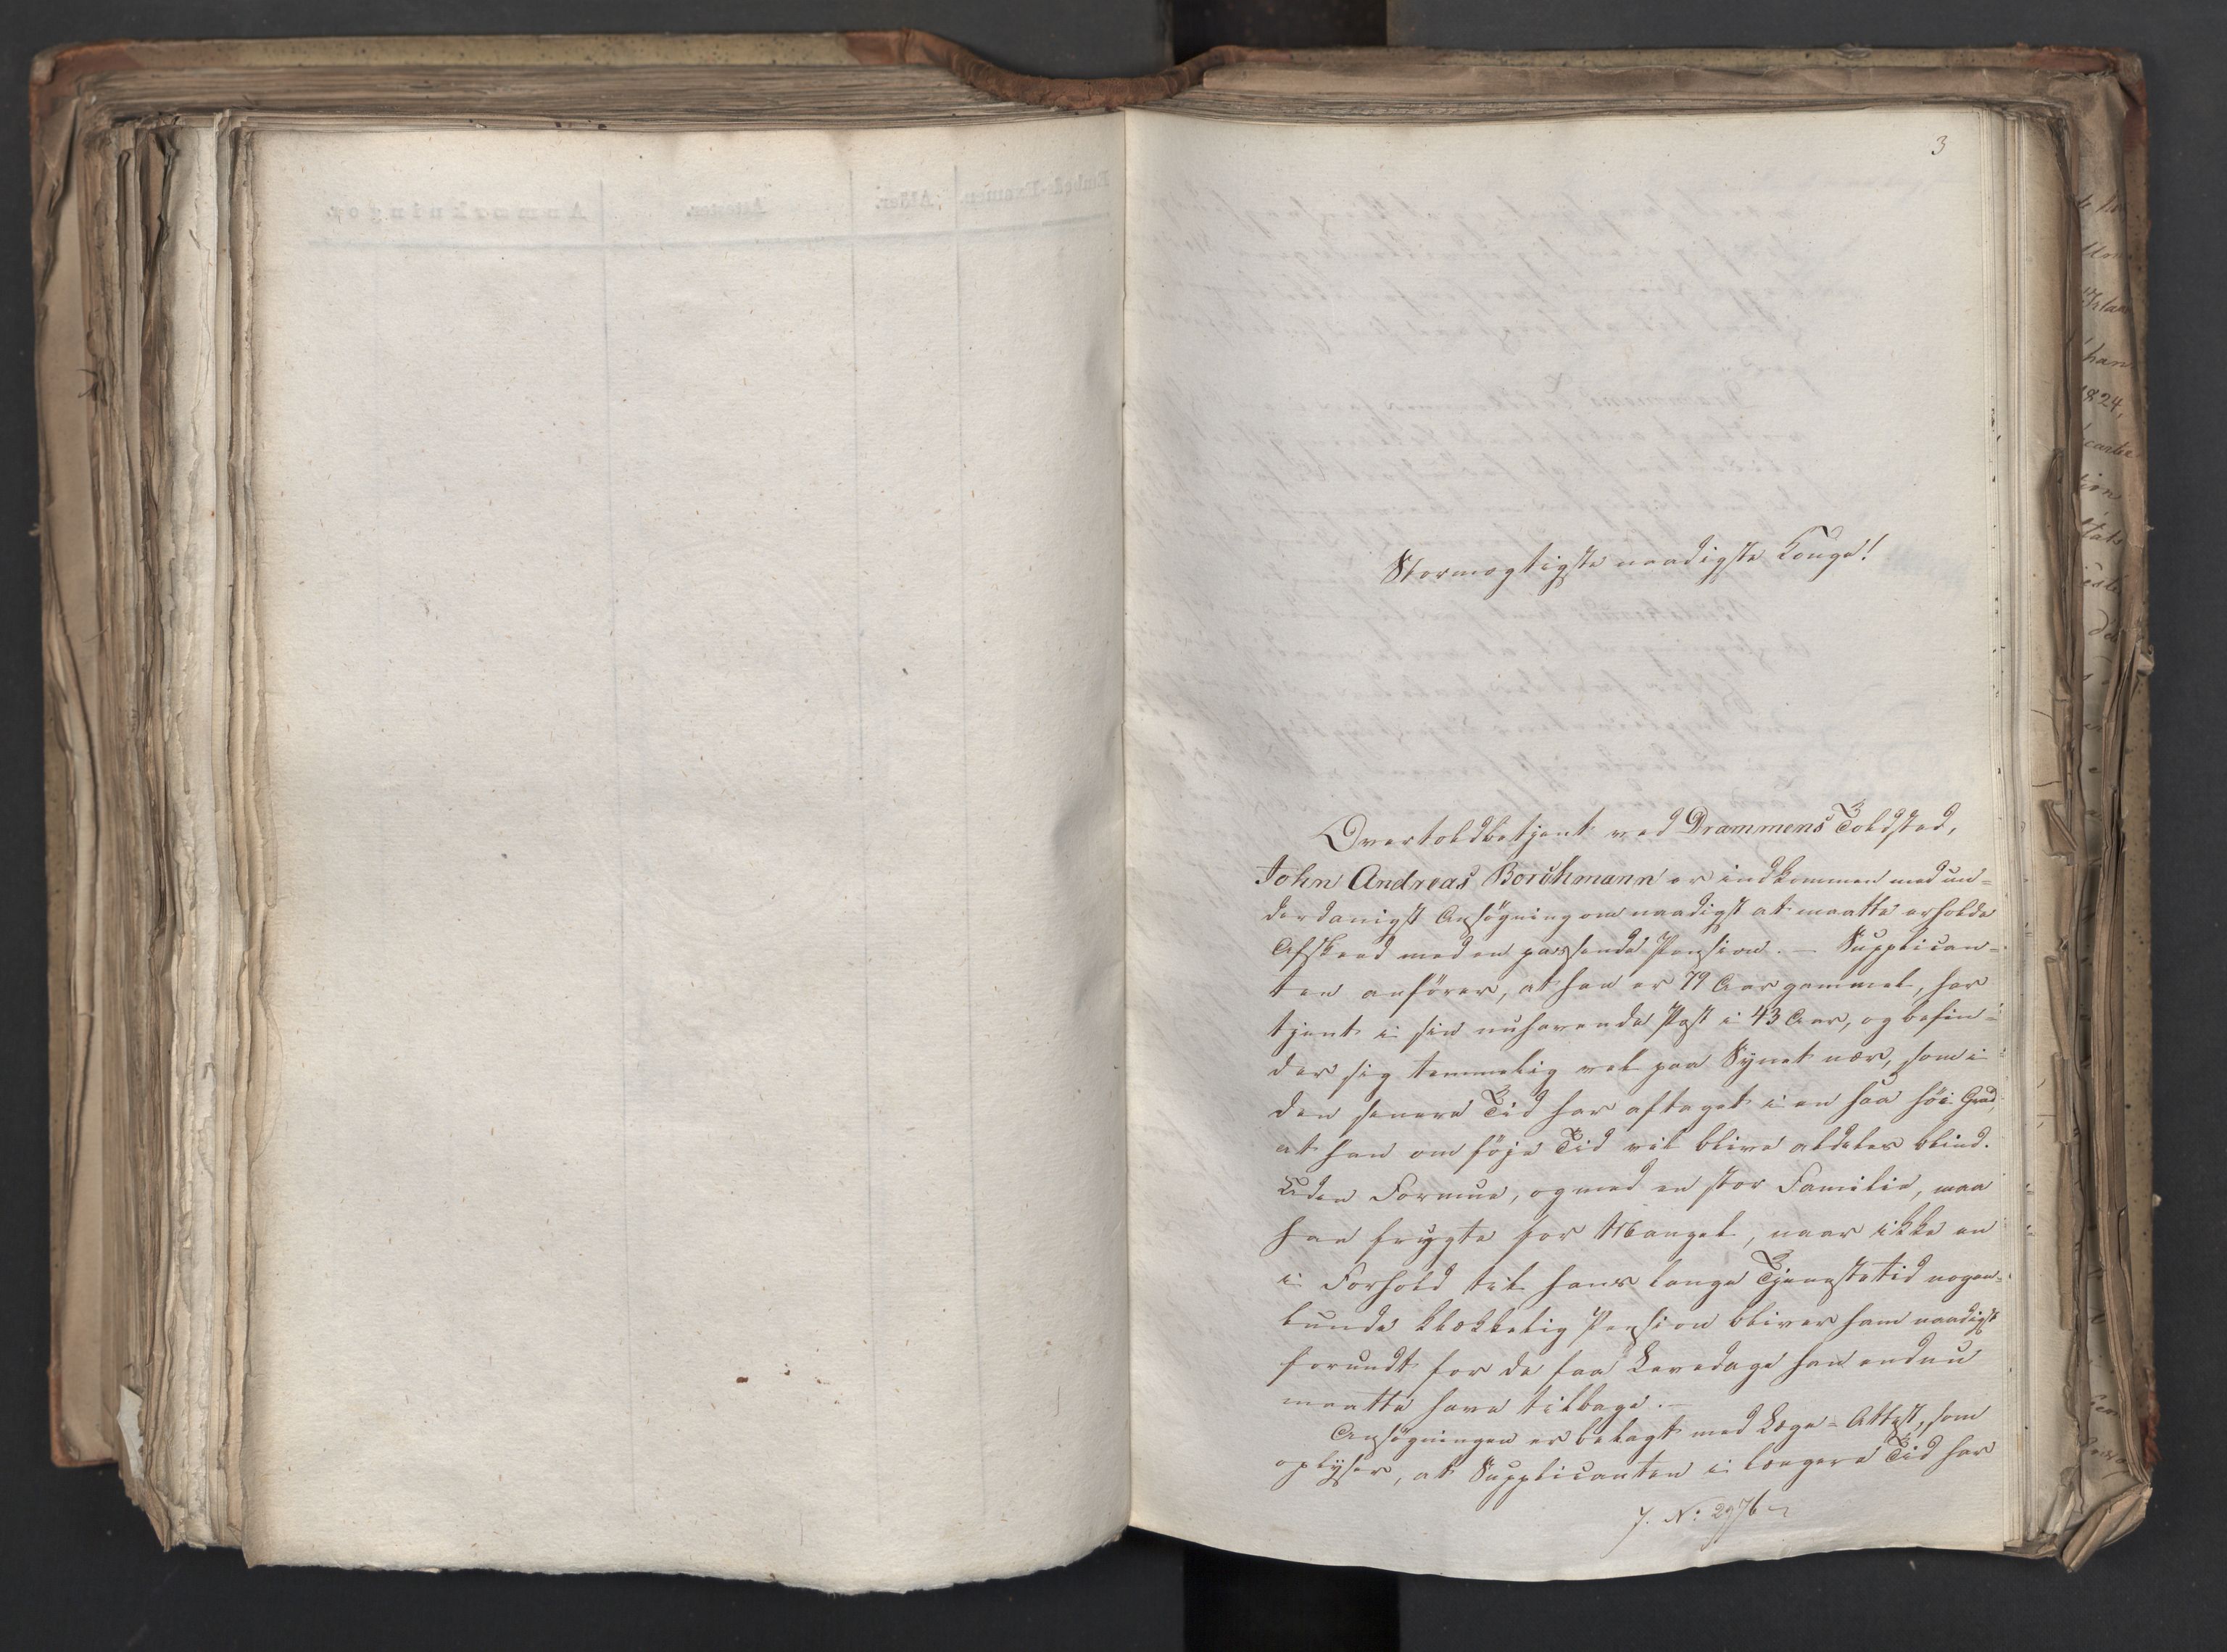 3
Stormægtigste naadigste Konge!
Overtoldbetjent ved Drammens Toldsted,
John Andreas Borchmann er indkommen med un=
derdanigst Ansøgning om naadigst at maatte erholde
Afskeed med en passende Pension. — Supplican=
ten anfører, at han er 79 Aar gammel, har
tjent i sin nuhavende Post i 43 Aar, og befin=
der sig temmelig vel paa Synet nær, som i
den senere Tid har aftaget i en saa høi Grad,
at han om føje Tid vil blive aldeles blind.
Uden Formue, og med en stor Familie, maa
han frygte for Mangel, naar ikke en
i Forhold til hans lange Tjenestetid nogen=
lunde klækkelig Pension bliver ham naadigst
forundt for de faa Levedage han endnu
maatte have tilbage. —
Ansøgningen er belagt med Læge=Attest, som
oplyser, at Supplicanten i længere Tid har
J. No: 2976